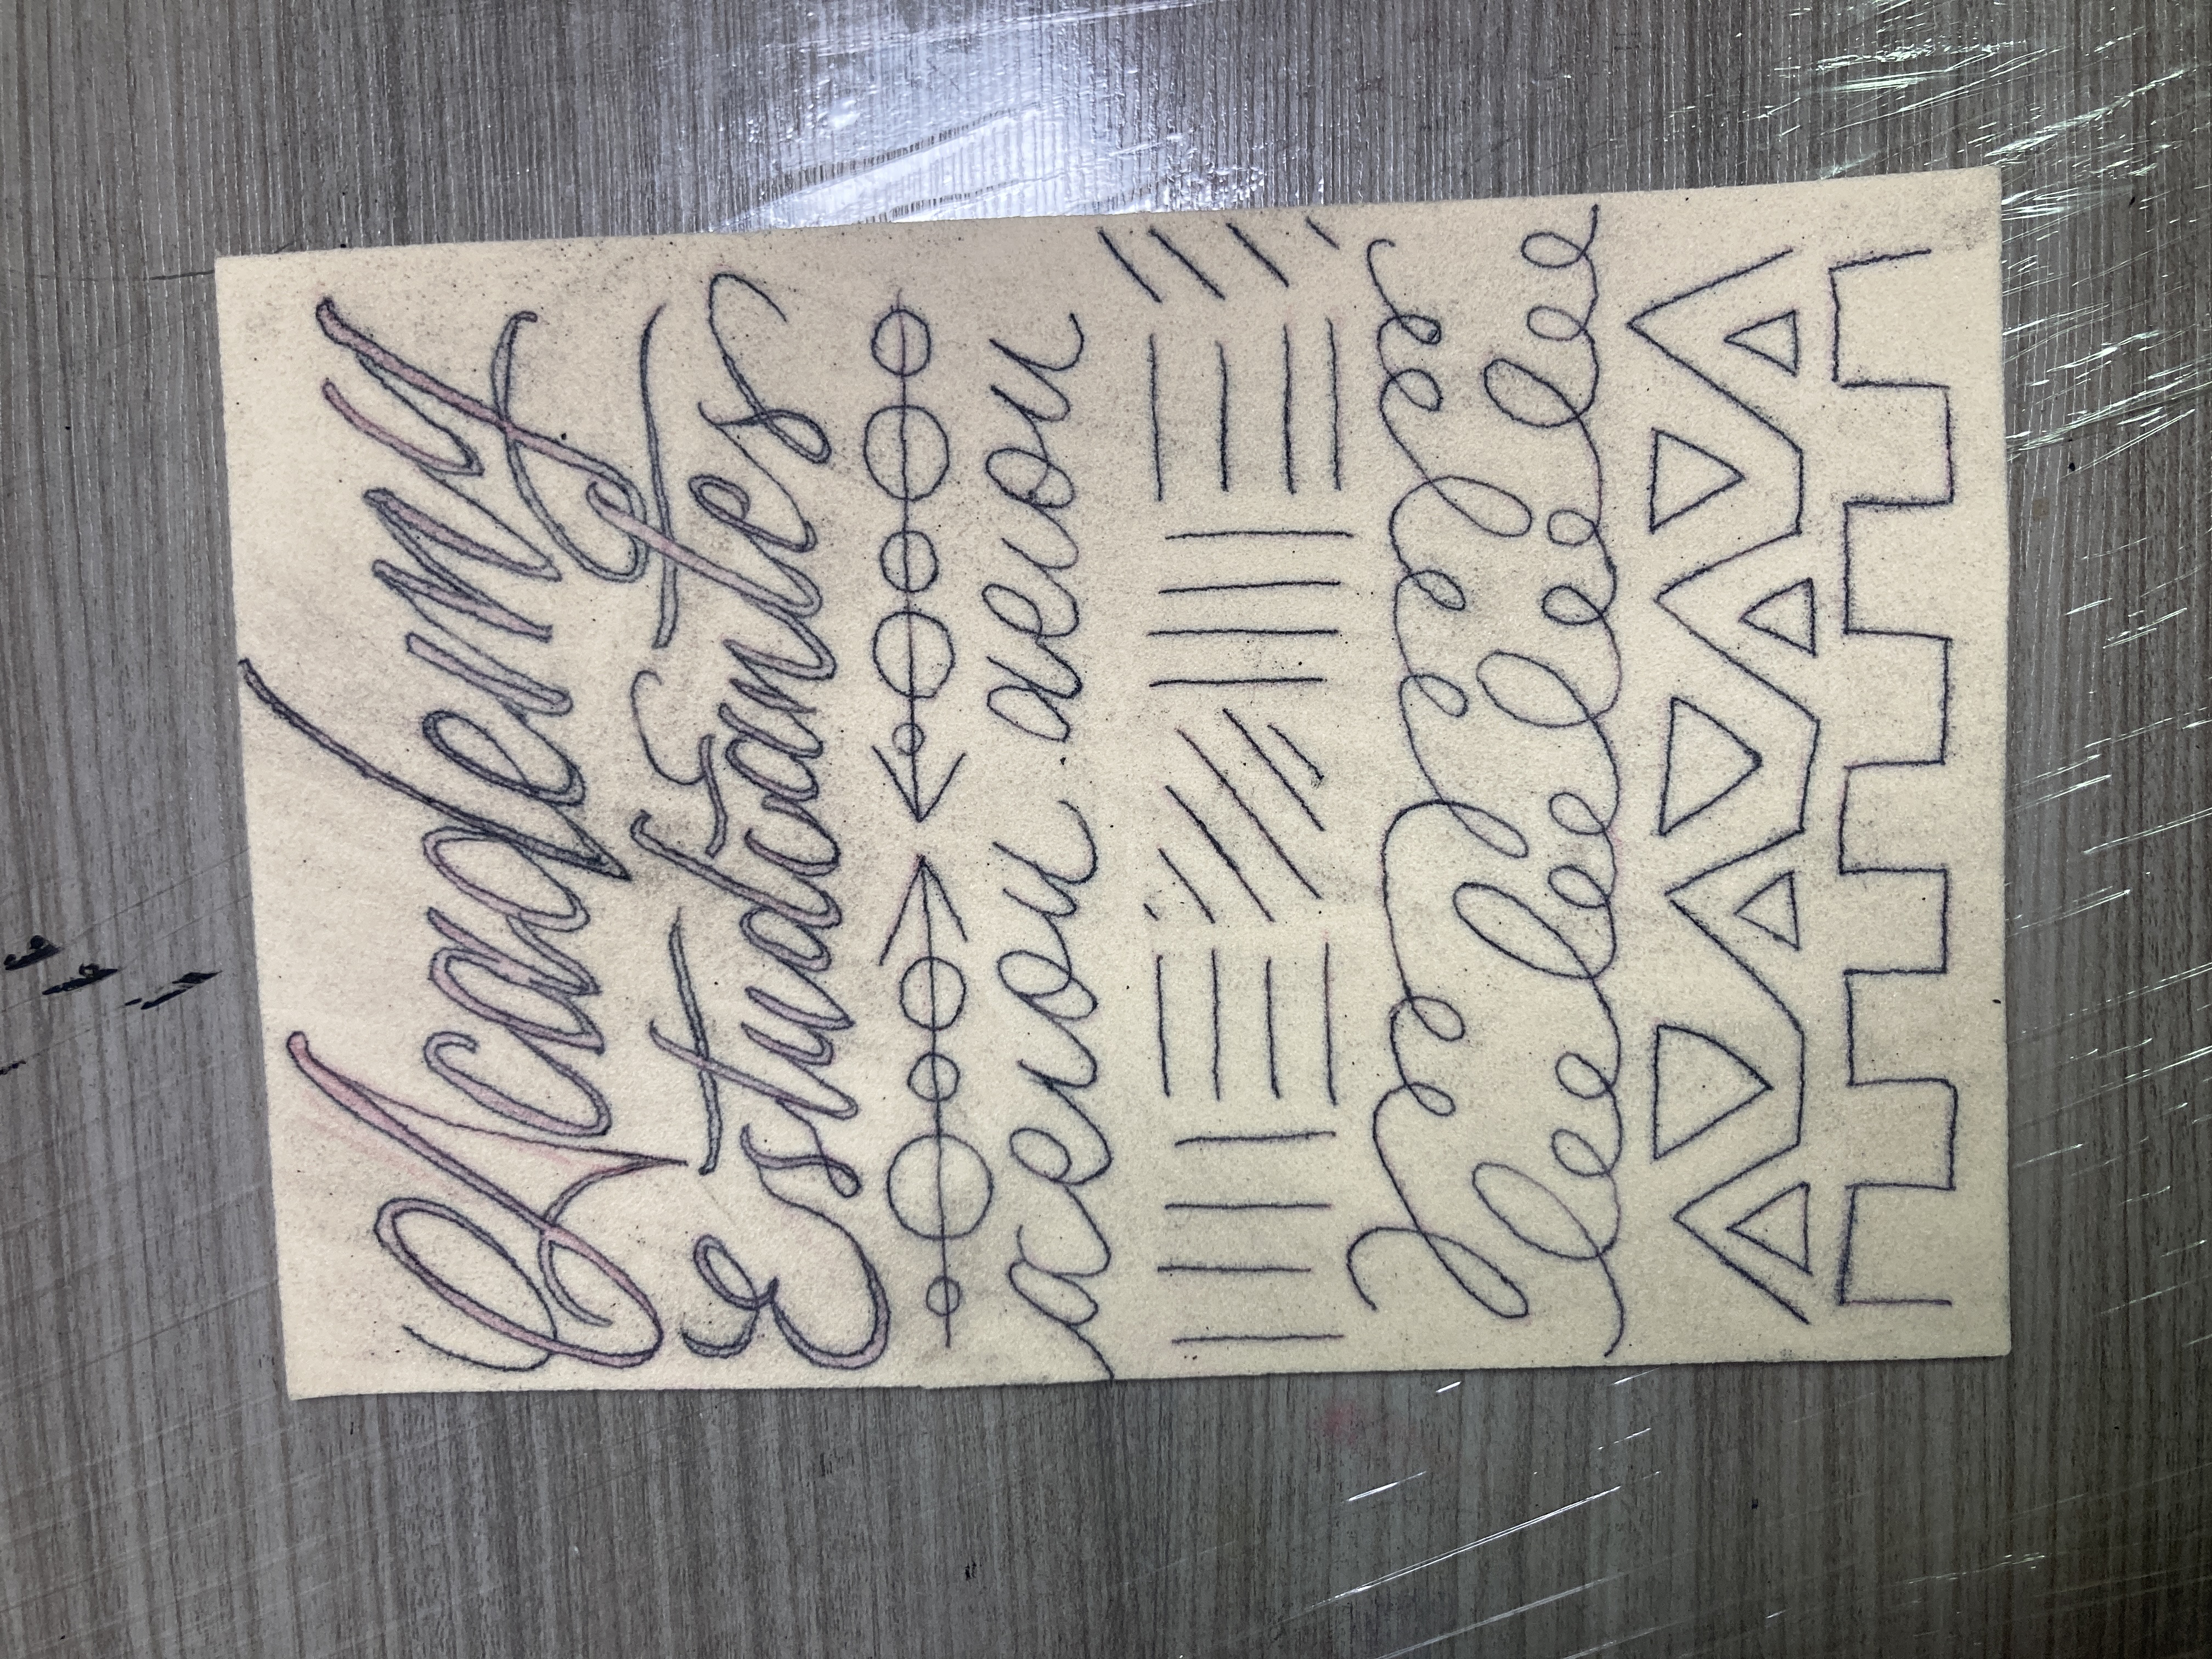 Academy
Estudiantes
aeiou aeiou